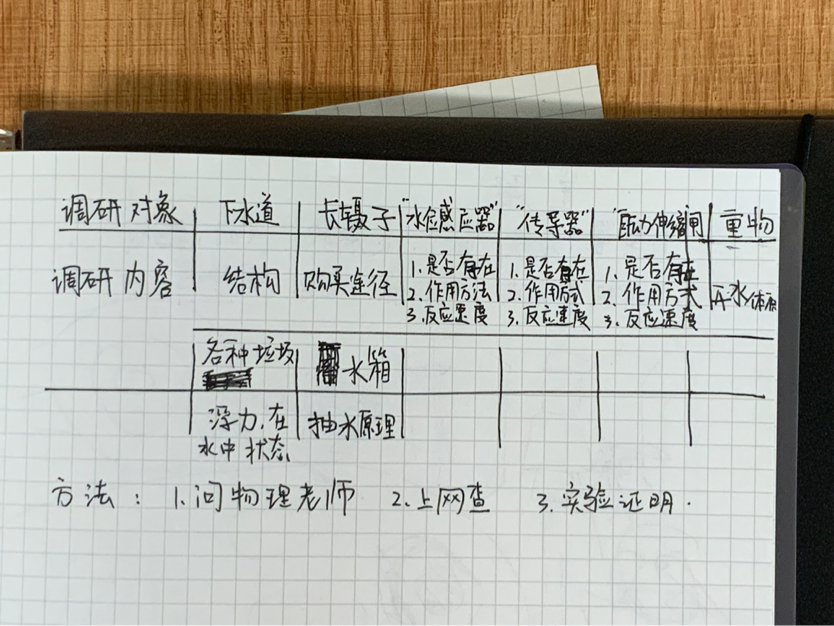 调研对象 下水道 长镊子 "水位感应器" "传导器" "自动伸缩闸" 重物
调研内容 结构 购买途径 1.是否存在 1.是否存在 1.是否存在
2.作用方法 2.作用方式 2.作用方式
3.反应速度 3.反应速度 3.反应速度
各种垃圾 水箱
浮力,在 抽水原理
水中状态
方法:1.问物理老师 2.上网查 3.实验证明.